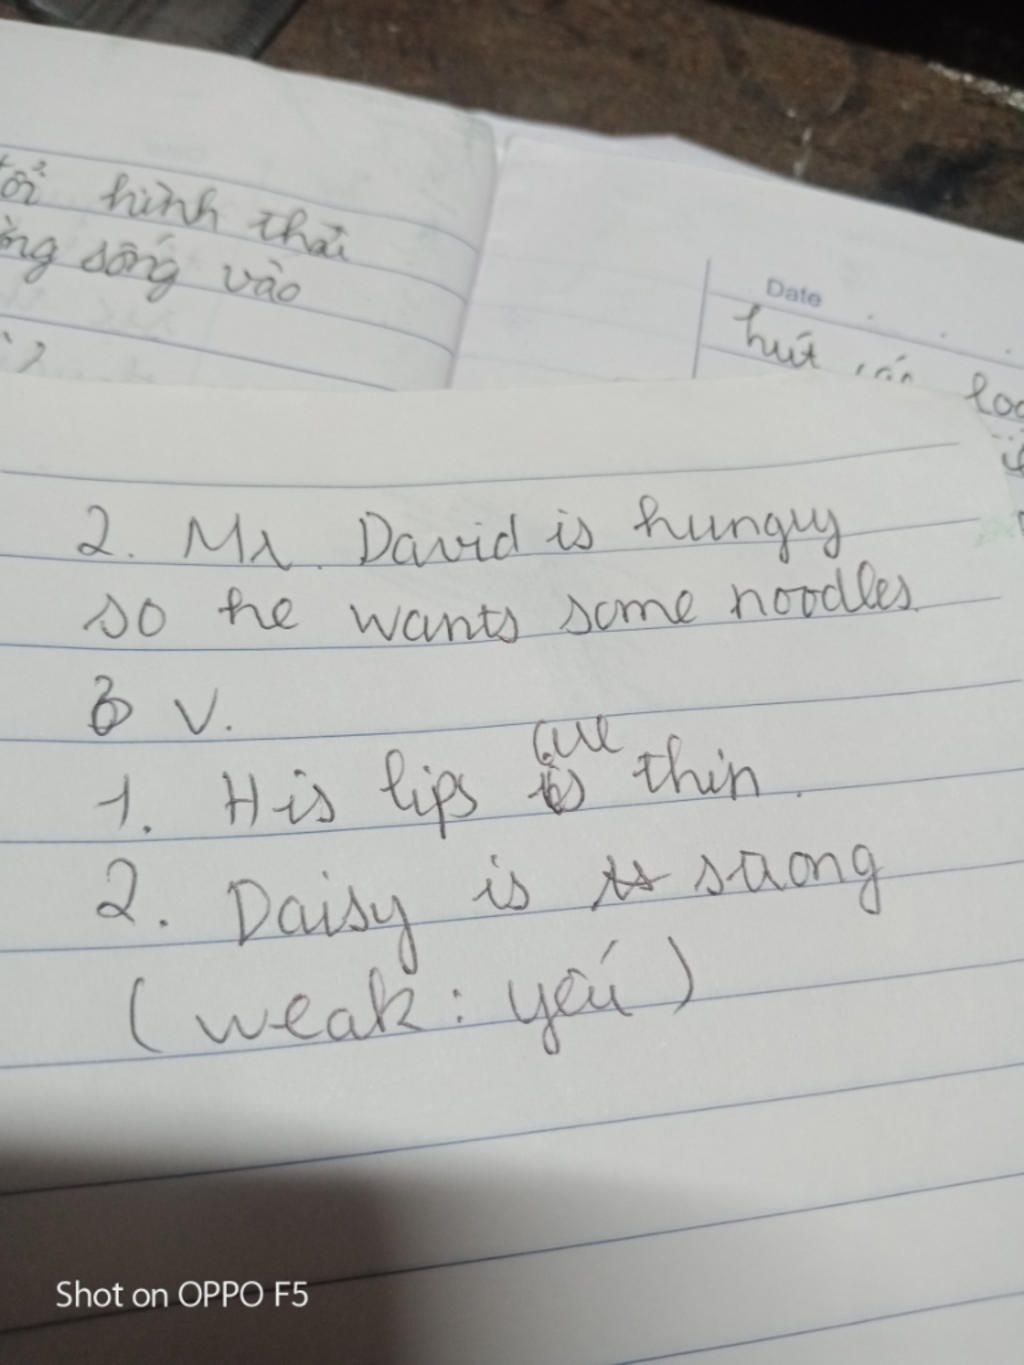 hình thái
sống vào
Date
hút
2. Mr. David is hungry
so he wants some noodles.
V.
1. His lips are thin.
2. Daisy is strong
(weak: yếu)
Shot on OPPO F5